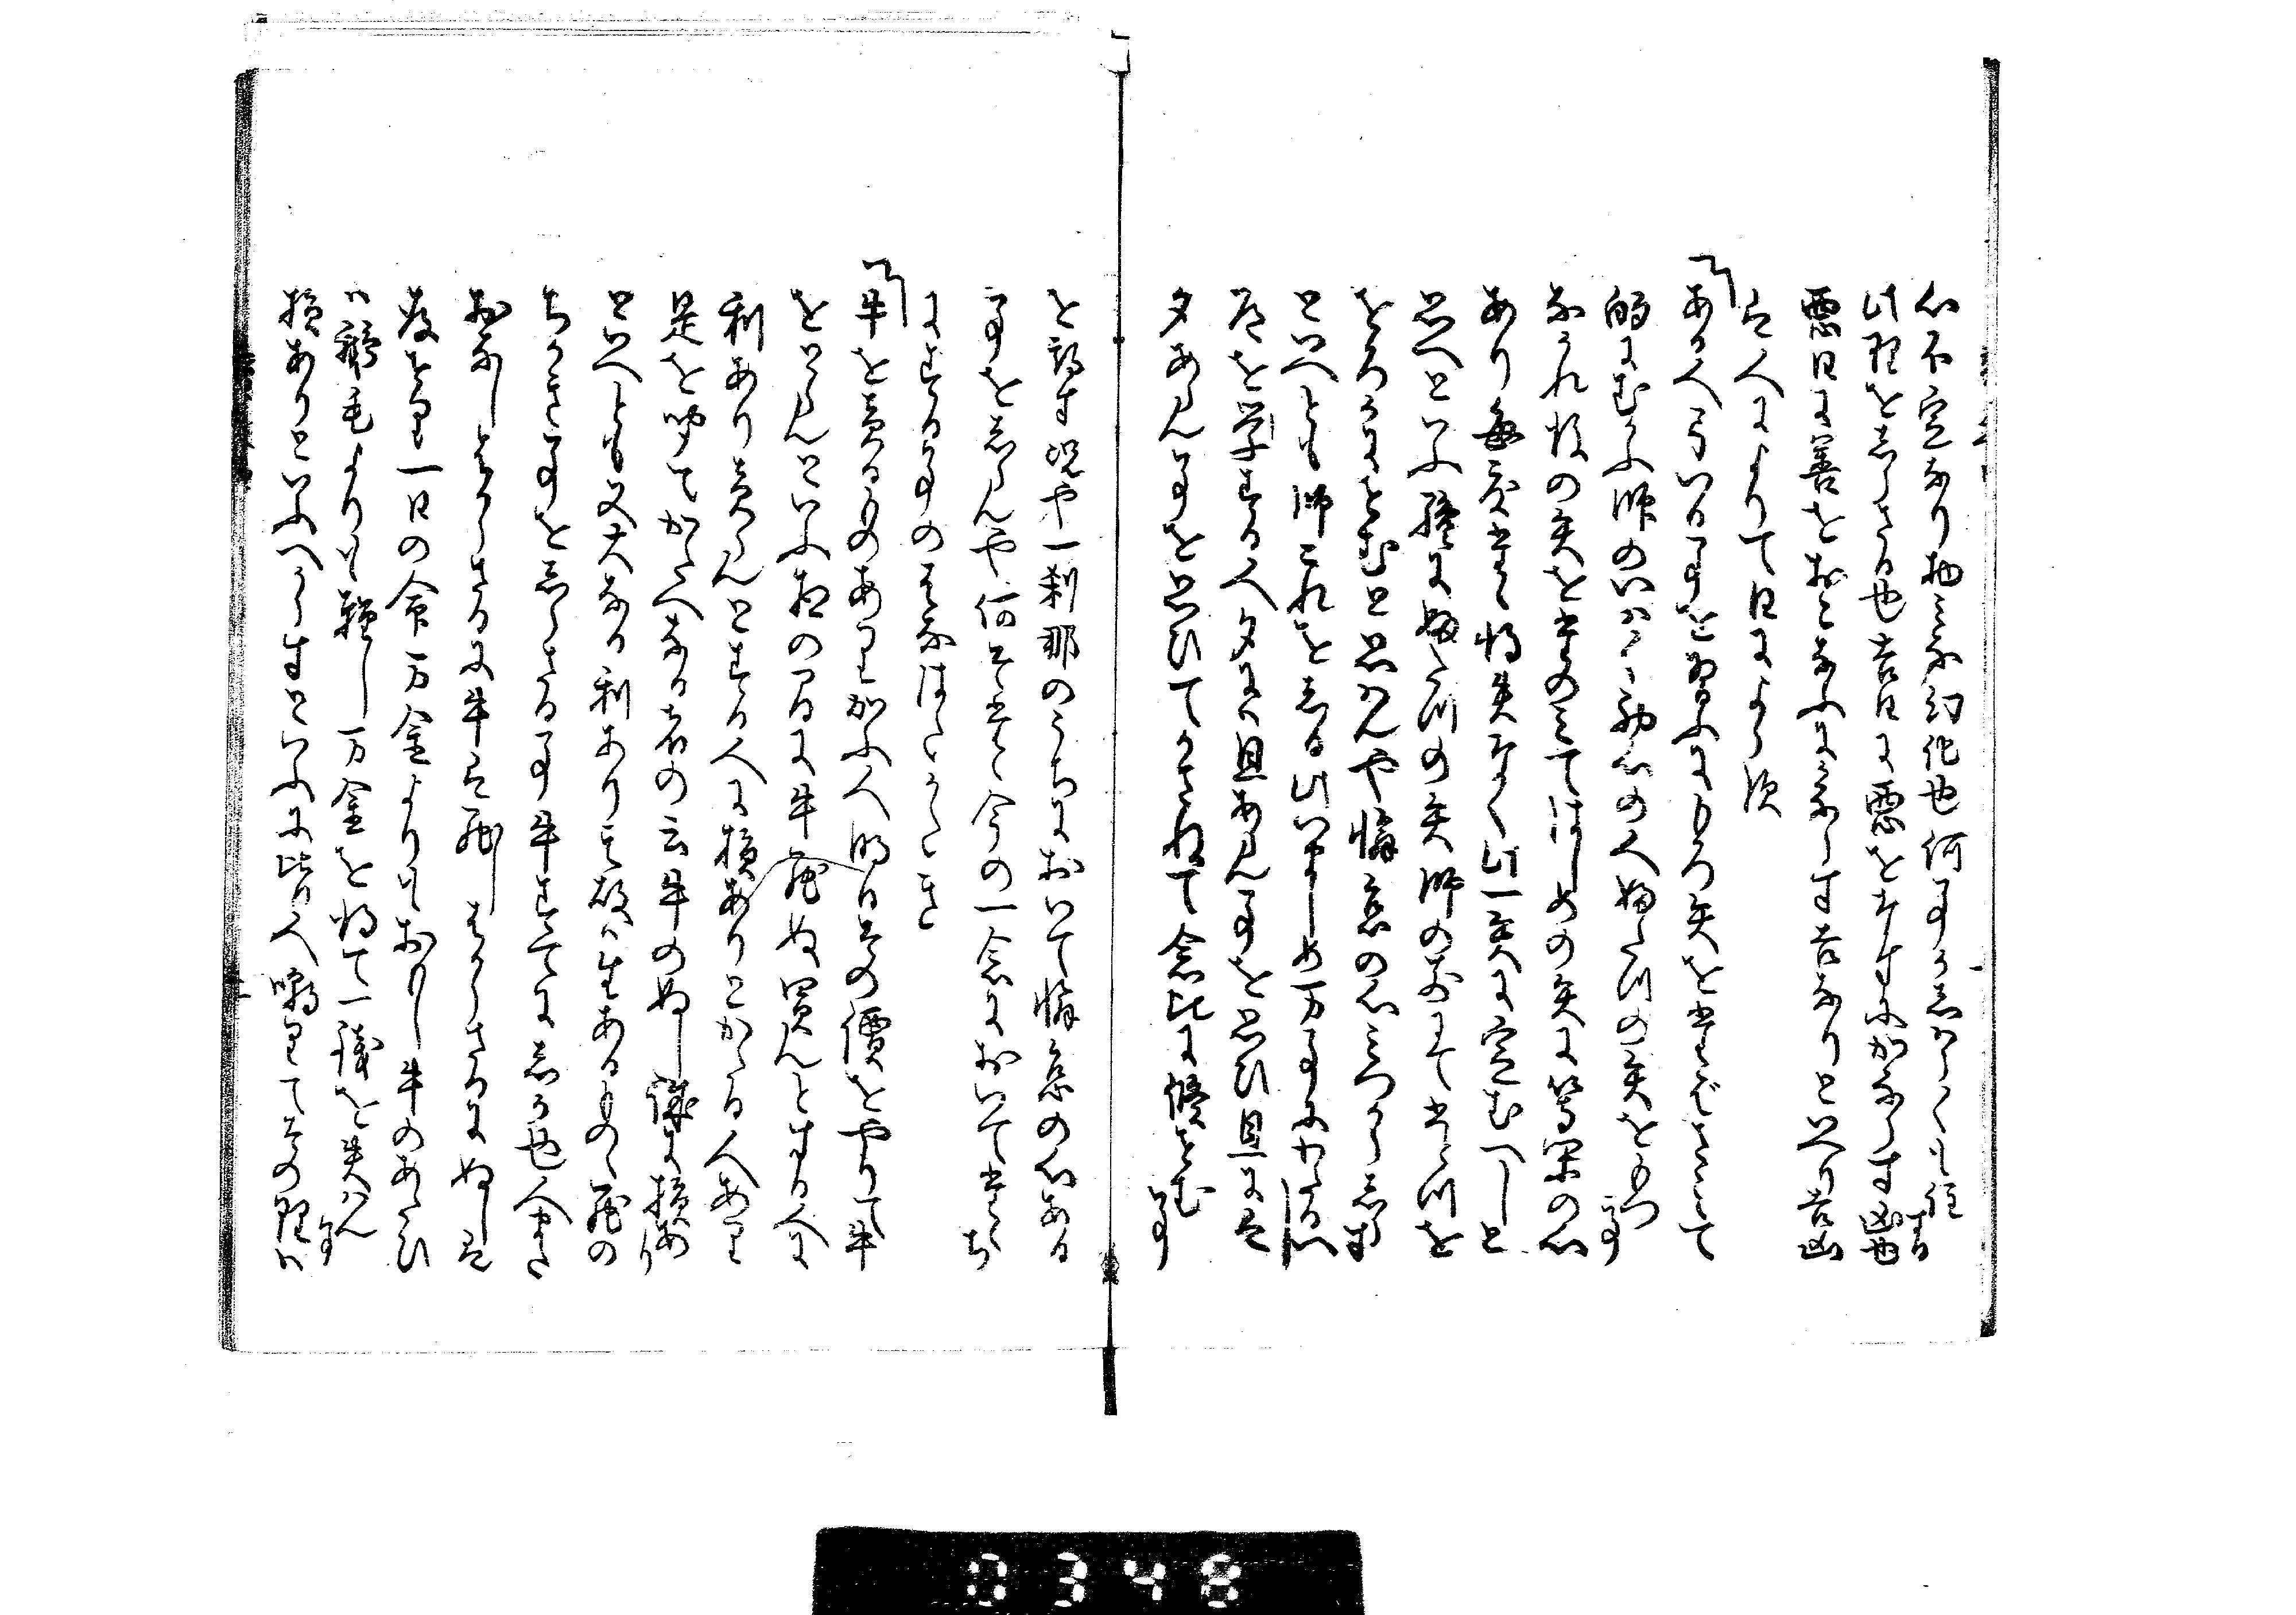 心不定なり物みな幻化也何事かしはらくも住する
此理をしらさる也吉日に悪をなすにかならす凶也
悪日に善をおこなふにかならす吉なりといへり吉凶
は人によりて日によらす
ある人弓いる事を習ふにもろ矢をたばさみて
的にむかふ師のいはく初心の人ふたつの矢をもつ事
なかれ後の矢をたのみてはしめの矢に等閑の心
あり毎度たゝ得失なく此一矢に定むへしと
思へといふ纔にふたつの矢師の前にてひとつを
をろかにせむと思はんや懈怠の心みつからしらす
といへとも師これをしる此いましめ万事にわたるへし
道を学する人夕には旦あらん事を思ひ旦には
夕あらん事を思ひてかさねて念比に修せむ事
を期す況や一刹那のうちにおいて懈怠の心ある
事をしらんや何そたゝ今の一念において たゝち
にする事のはなはたかたき
牛を売るものあり かふ人明日その価をやりて牛
をとらんといふ夜の間に牛死ぬ買んとする人に
利あり売らんとする人に損ありとかたる人あり
是を聞てかたへなる者の云牛のぬし誠に損あり
といへとも又大なる利あり其故は生あるもの死の
ちかき事をしらさる事牛すてにしか也人また
おなしはからさるに牛は死しはからさるにぬしは
存せり一日の命万金よりもおもし牛のあたひ
は鵞毛よりも軽し万金を得て一銭を失はん事
損ありといふへからすといふに皆人嘲りてその理は
0348